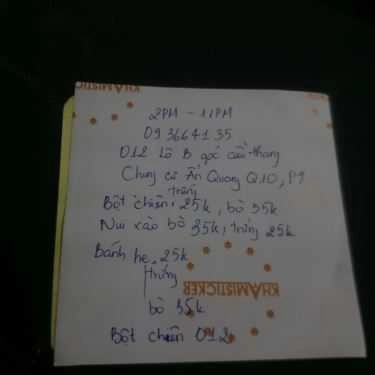 KHAMISTICKER
2PM - 11PM
09 3664135
012 Lô B góc cầu thang
Chung cư Ấn Quang Q.10, P9
Bột chiên trứng 25k, bò 35k
Nui xào bò 35k, trứng 25k
Bánh hẹ, 25k
trứng
KHAMISTICKER
bò 35k
Bột chiên 012